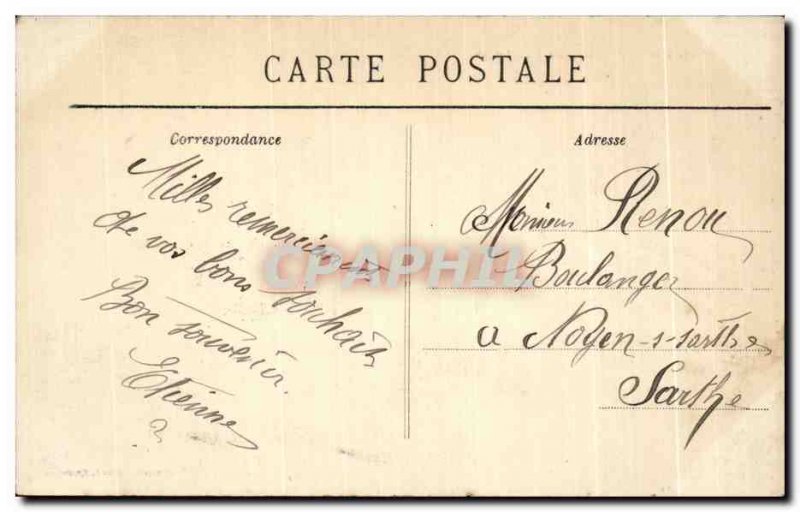 CARTE POSTALE
Correspondance
Milles remerciements
de vos bons souhaits
Bon souvenir.
Etienne
Adresse
Monsieur Renou
Boulanger
a Noyen-s-Sarthe
Sarthe
CPAPHIL